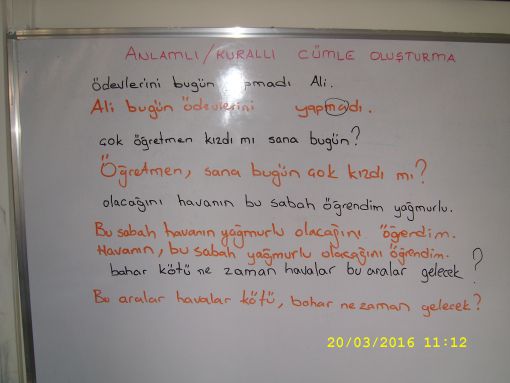 ANLAMLI / KURALLI CÜMLE OLUŞTURMA
ödevlerini bugün yapmadı Ali.
Ali bugün ödevlerini yapmadı.
çok öğretmen kızdı mı sana bugün?
Öğretmen, sana bugün çok kızdı mı?
olacağını havanın bu sabah öğrendim yağmurlu.
Bu sabah havanın yağmurlu olacağını öğrendim.
Havanın, bu sabah yağmurlu olacağını öğrendim.
bahar kötü ne zaman havalar bu aralar gelecek?
Bu aralar havalar kötü, bahar ne zaman gelecek?
20/03/2016 11:12